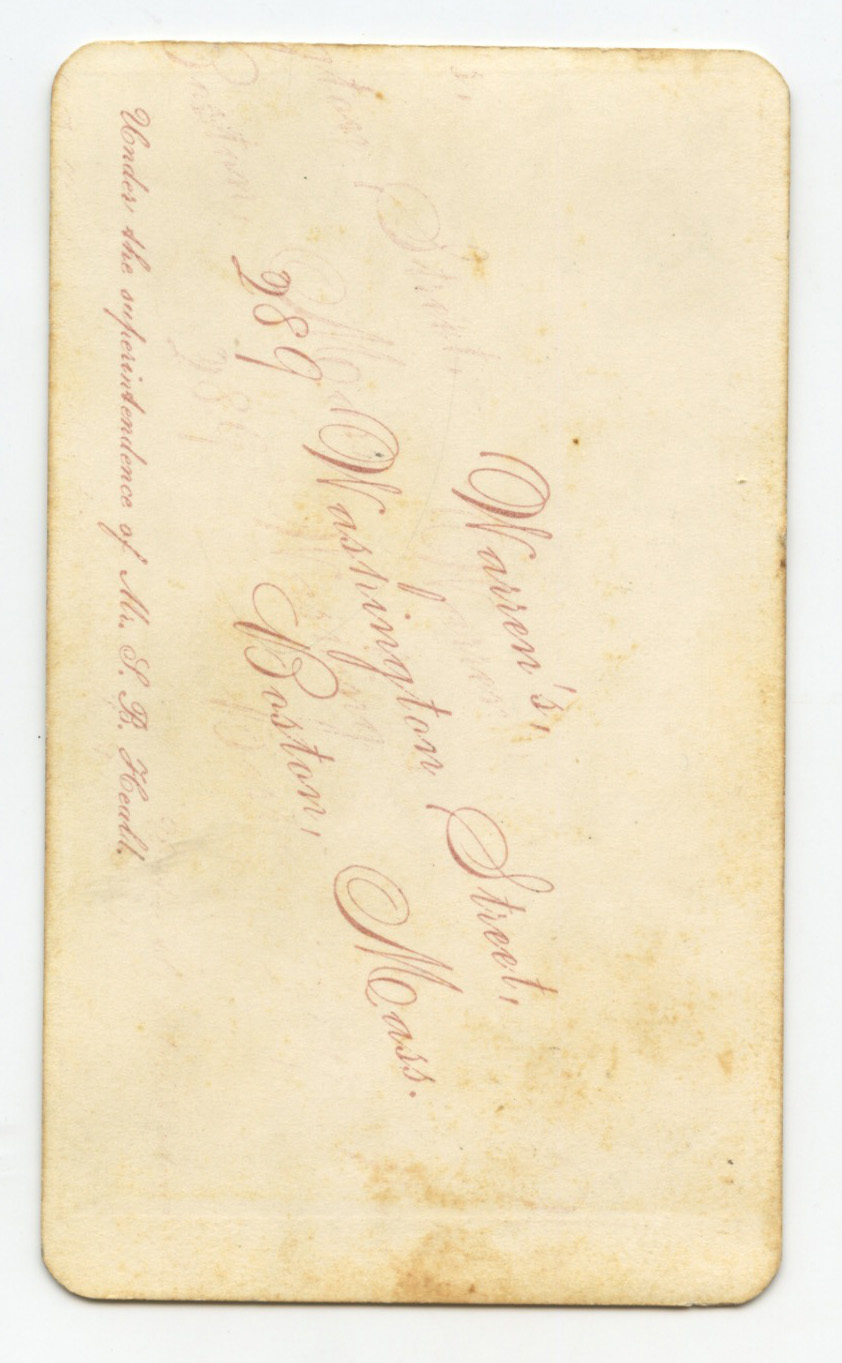 Warren's,
289 Washington Street,
Boston, Mass.
Under the superintendence of Mr. S. B. Heald.